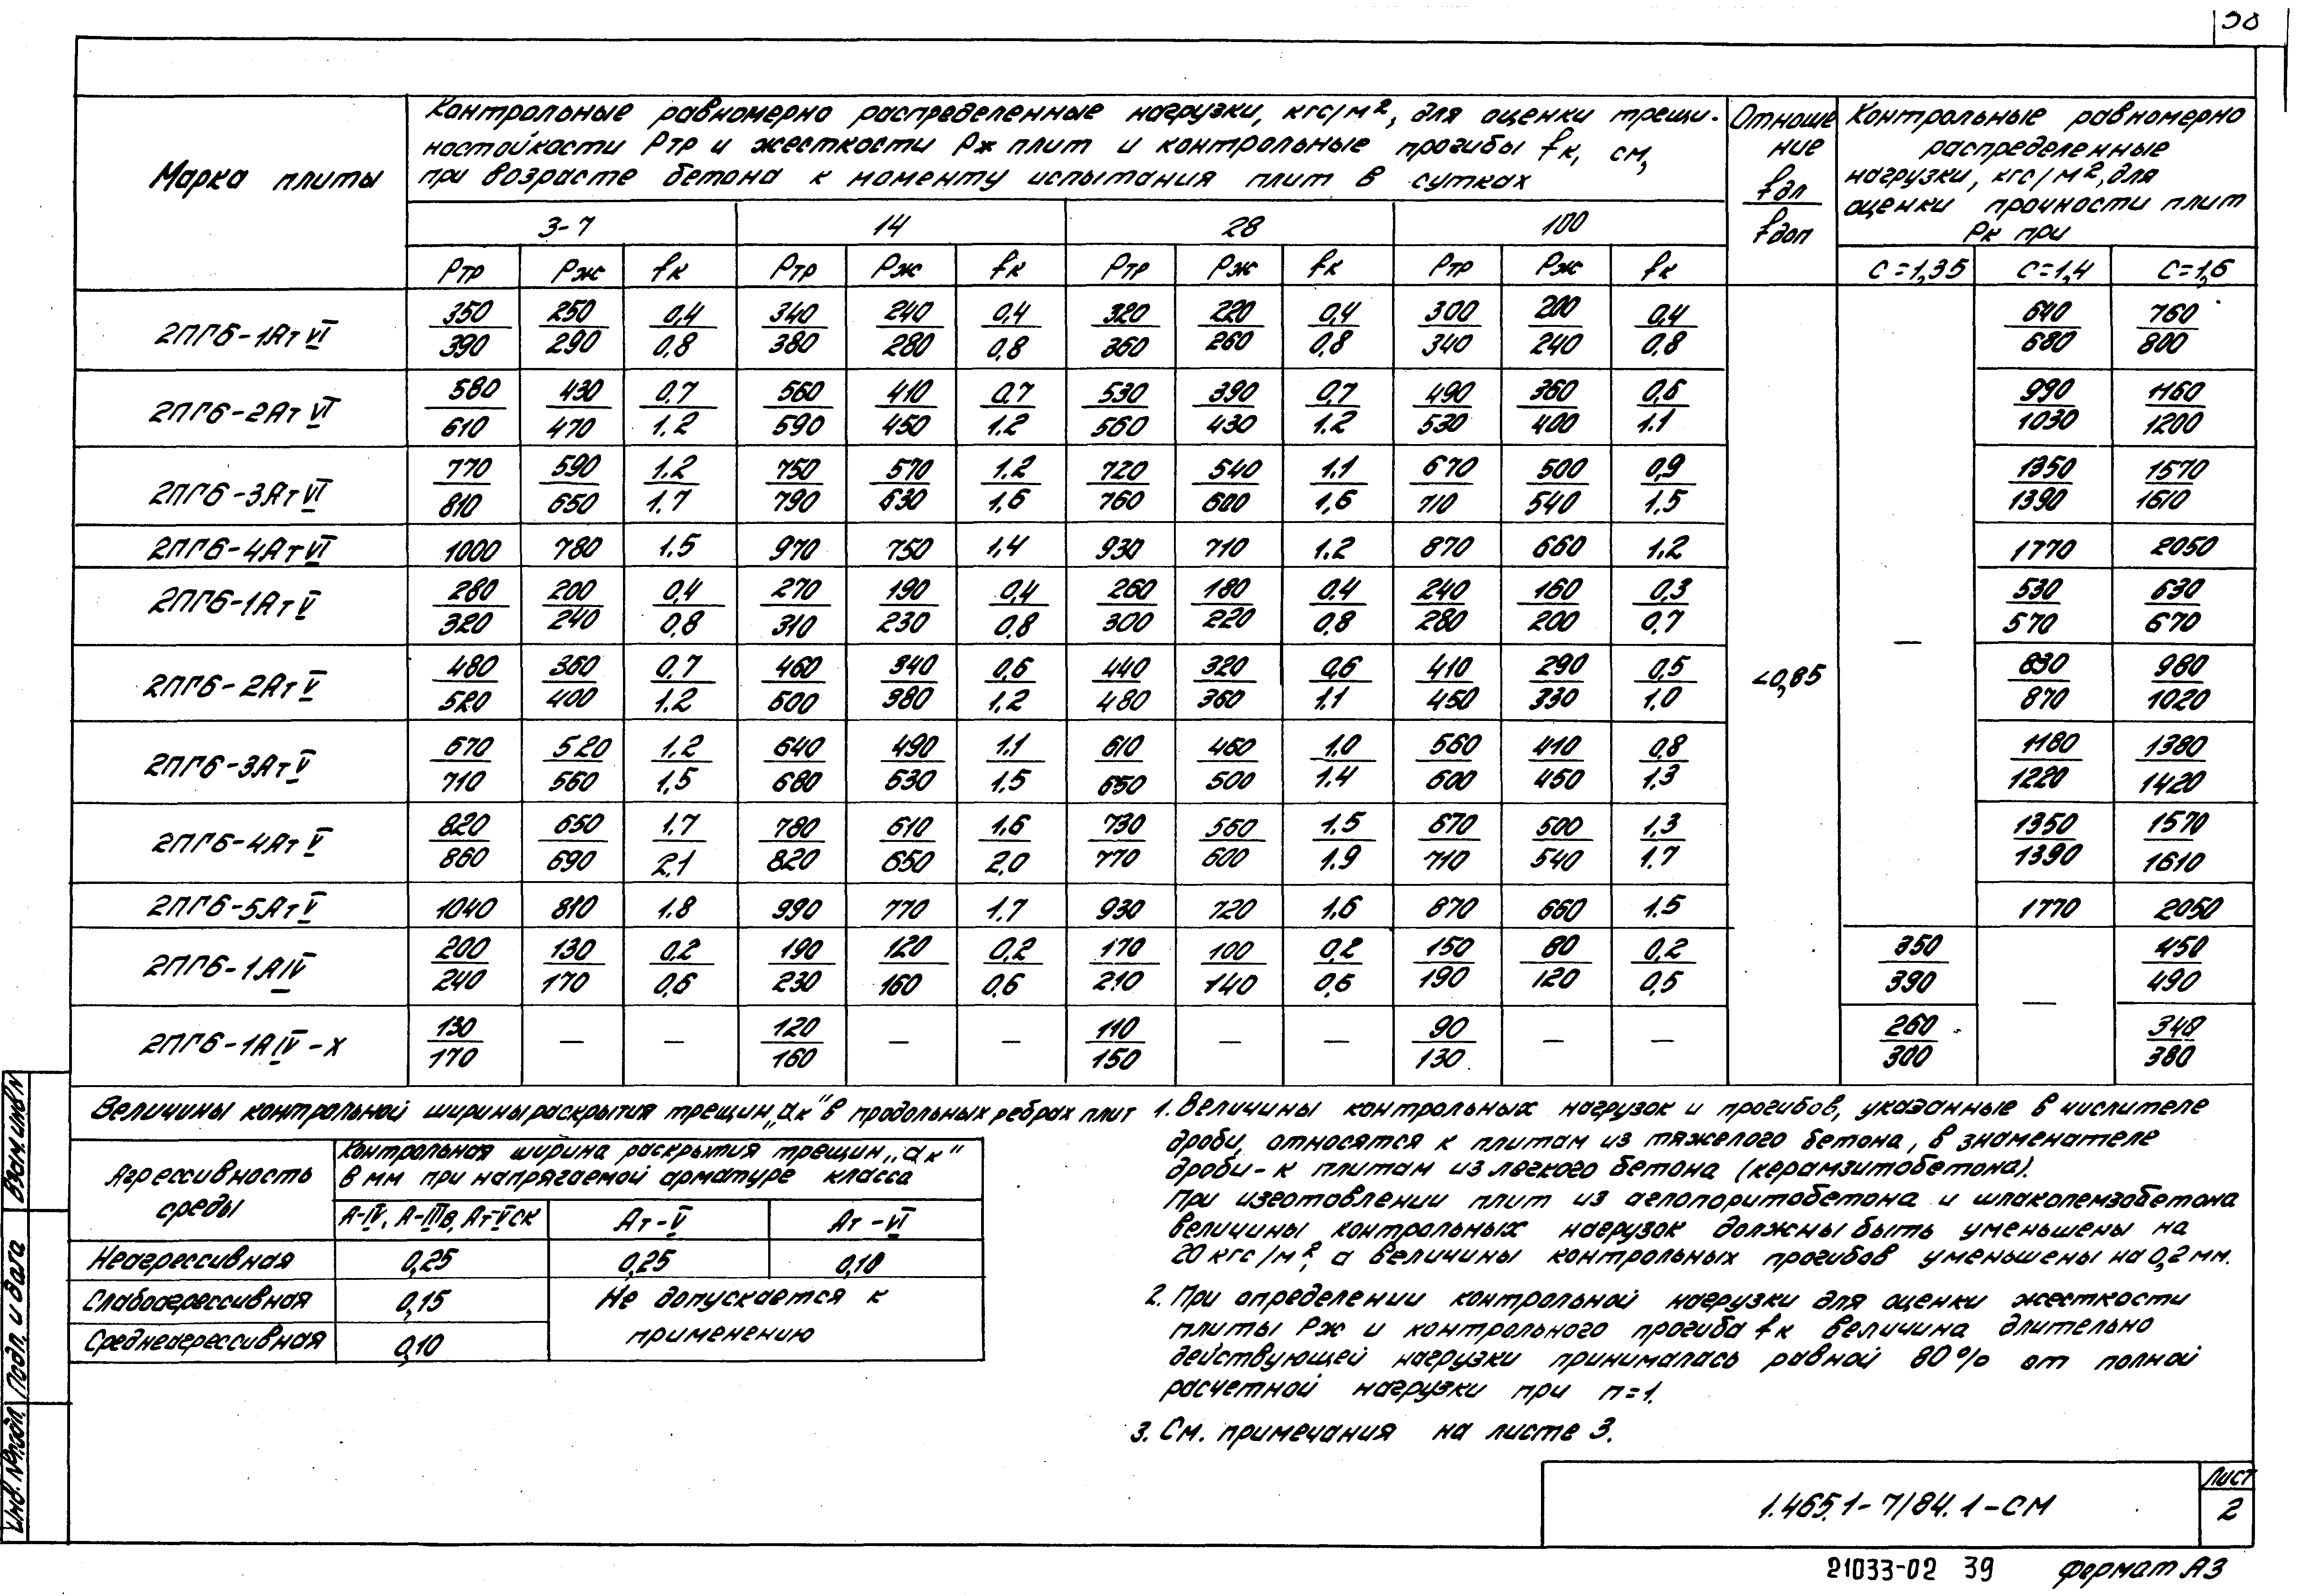 38
Марка плиты
Контрольные равномерно распределенные нагрузки, кгс/м², для оценки трещи-
ностойкости Ртр и жесткости Рж плит и контрольные прогибы fк, см,
при возрасте бетона к моменту испытания плит в сутках
Отноше
ние
fдл
fдоп
Контрольные равномерно
распределенные
нагрузки, кгс/м², для
оценки прочности плит
Рк при
3-7 14 28 100
Ртр Рж fк Ртр Рж fк Ртр Рж fк Ртр Рж fк С=1,35 С=1,4 С=1,6
2ПГ6-1АтVI 350/390 250/290 0,4/0,8 340/380 240/280 0,4/0,8 320/360 220/260 0,4/0,8 300/340 200/240 0,4/0,8 640/680 760/800
2ПГ6-2АтVI 580/610 430/470 0,7/1.2 560/590 410/450 0,7/1.2 530/560 390/430 0,7/1.2 490/530 360/400 0,6/1.1 990/1030 1160/1200
2ПГ6-3АтVI 770/810 590/650 1.2/1.7 750/790 570/630 1.2/1,6 720/760 540/600 1.1/1,6 670/710 500/540 0,9/1.5 1350/1390 1570/1610
2ПГ6-4АтVI 1000 780 1.5 970 750 1,4 930 710 1.2 870 660 1.2 1770 2050
2ПГ6-1АтV 280/320 200/240 0,4/0,8 270/310 190/230 0,4/0,8 260/300 180/220 0,4/0,8 240/280 160/200 0,3/0,7 — 530/570 630/670
2ПГ6-2АтV 480/520 360/400 0,7/1.2 460/500 340/380 0,6/1,2 440/480 320/360 0,6/1.1 410/450 290/330 0,5/1.0 <0,85 830/870 980/1020
2ПГ6-3АтV 670/710 520/560 1.2/1,5 640/680 490/530 1.1/1.5 610/650 460/500 1.0/1.4 560/600 410/450 0,8/1.3 1180/1220 1380/1420
2ПГ6-4АтV 820/860 650/690 1.7/2,1 780/820 610/650 1.6/2,0 730/770 560/600 1.5/1.9 670/710 500/540 1,3/1.7 1350/1390 1570/1610
2ПГ6-5АтV 1040 810 1.8 990 770 1.7 930 720 1,6 870 660 1.5 1770 2050
2ПГ6-1АIV 200/240 130/170 0,2/0,6 190/230 120/160 0,2/0,6 170/210 100/140 0,2/0,6 150/190 80/120 0,2/0,5 350/390 — 450/490
2ПГ6-1АIV-х 130/170 — — 120/160 — — 110/150 — — 90/130 — — 260/300 340/380
Величины контрольной ширины раскрытия трещин „ак" в продольных ребрах плит
Агрессивность
среды
Контрольная ширина раскрытия трещин „ак"
в мм при напрягаемой арматуре класса
А-IV, А-IIIв, Ат-VСК Ат-V Ат-VI
Неагрессивная 0,25 0,25 0,10
Слабоагрессивная 0,15 Не допускается к
Среднеагрессивная 0,10 применению
1. Величины контрольных нагрузок и прогибов, указанные в числителе
дроби, относятся к плитам из тяжелого бетона, в знаменателе
дроби - к плитам из легкого бетона (керамзитобетона).
При изготовлении плит из аглопоритобетона и шлакопемзобетона
величины контрольных нагрузок должны быть уменьшены на
20 кгс/м², а величины контрольных прогибов уменьшены на 0,2 мм.
2. При определении контрольной нагрузки для оценки жесткости
плиты Рж и контрольного прогиба fк величина длительно
действующей нагрузки принималась равной 80% от полной
расчетной нагрузки при n=1.
3. См. примечания на листе 3.
Взам.инв№
Подп. и дата
Инв.№подл.
1.465.1-7/84.1-СМ
Лист
2
21033-02 39 Формат А3